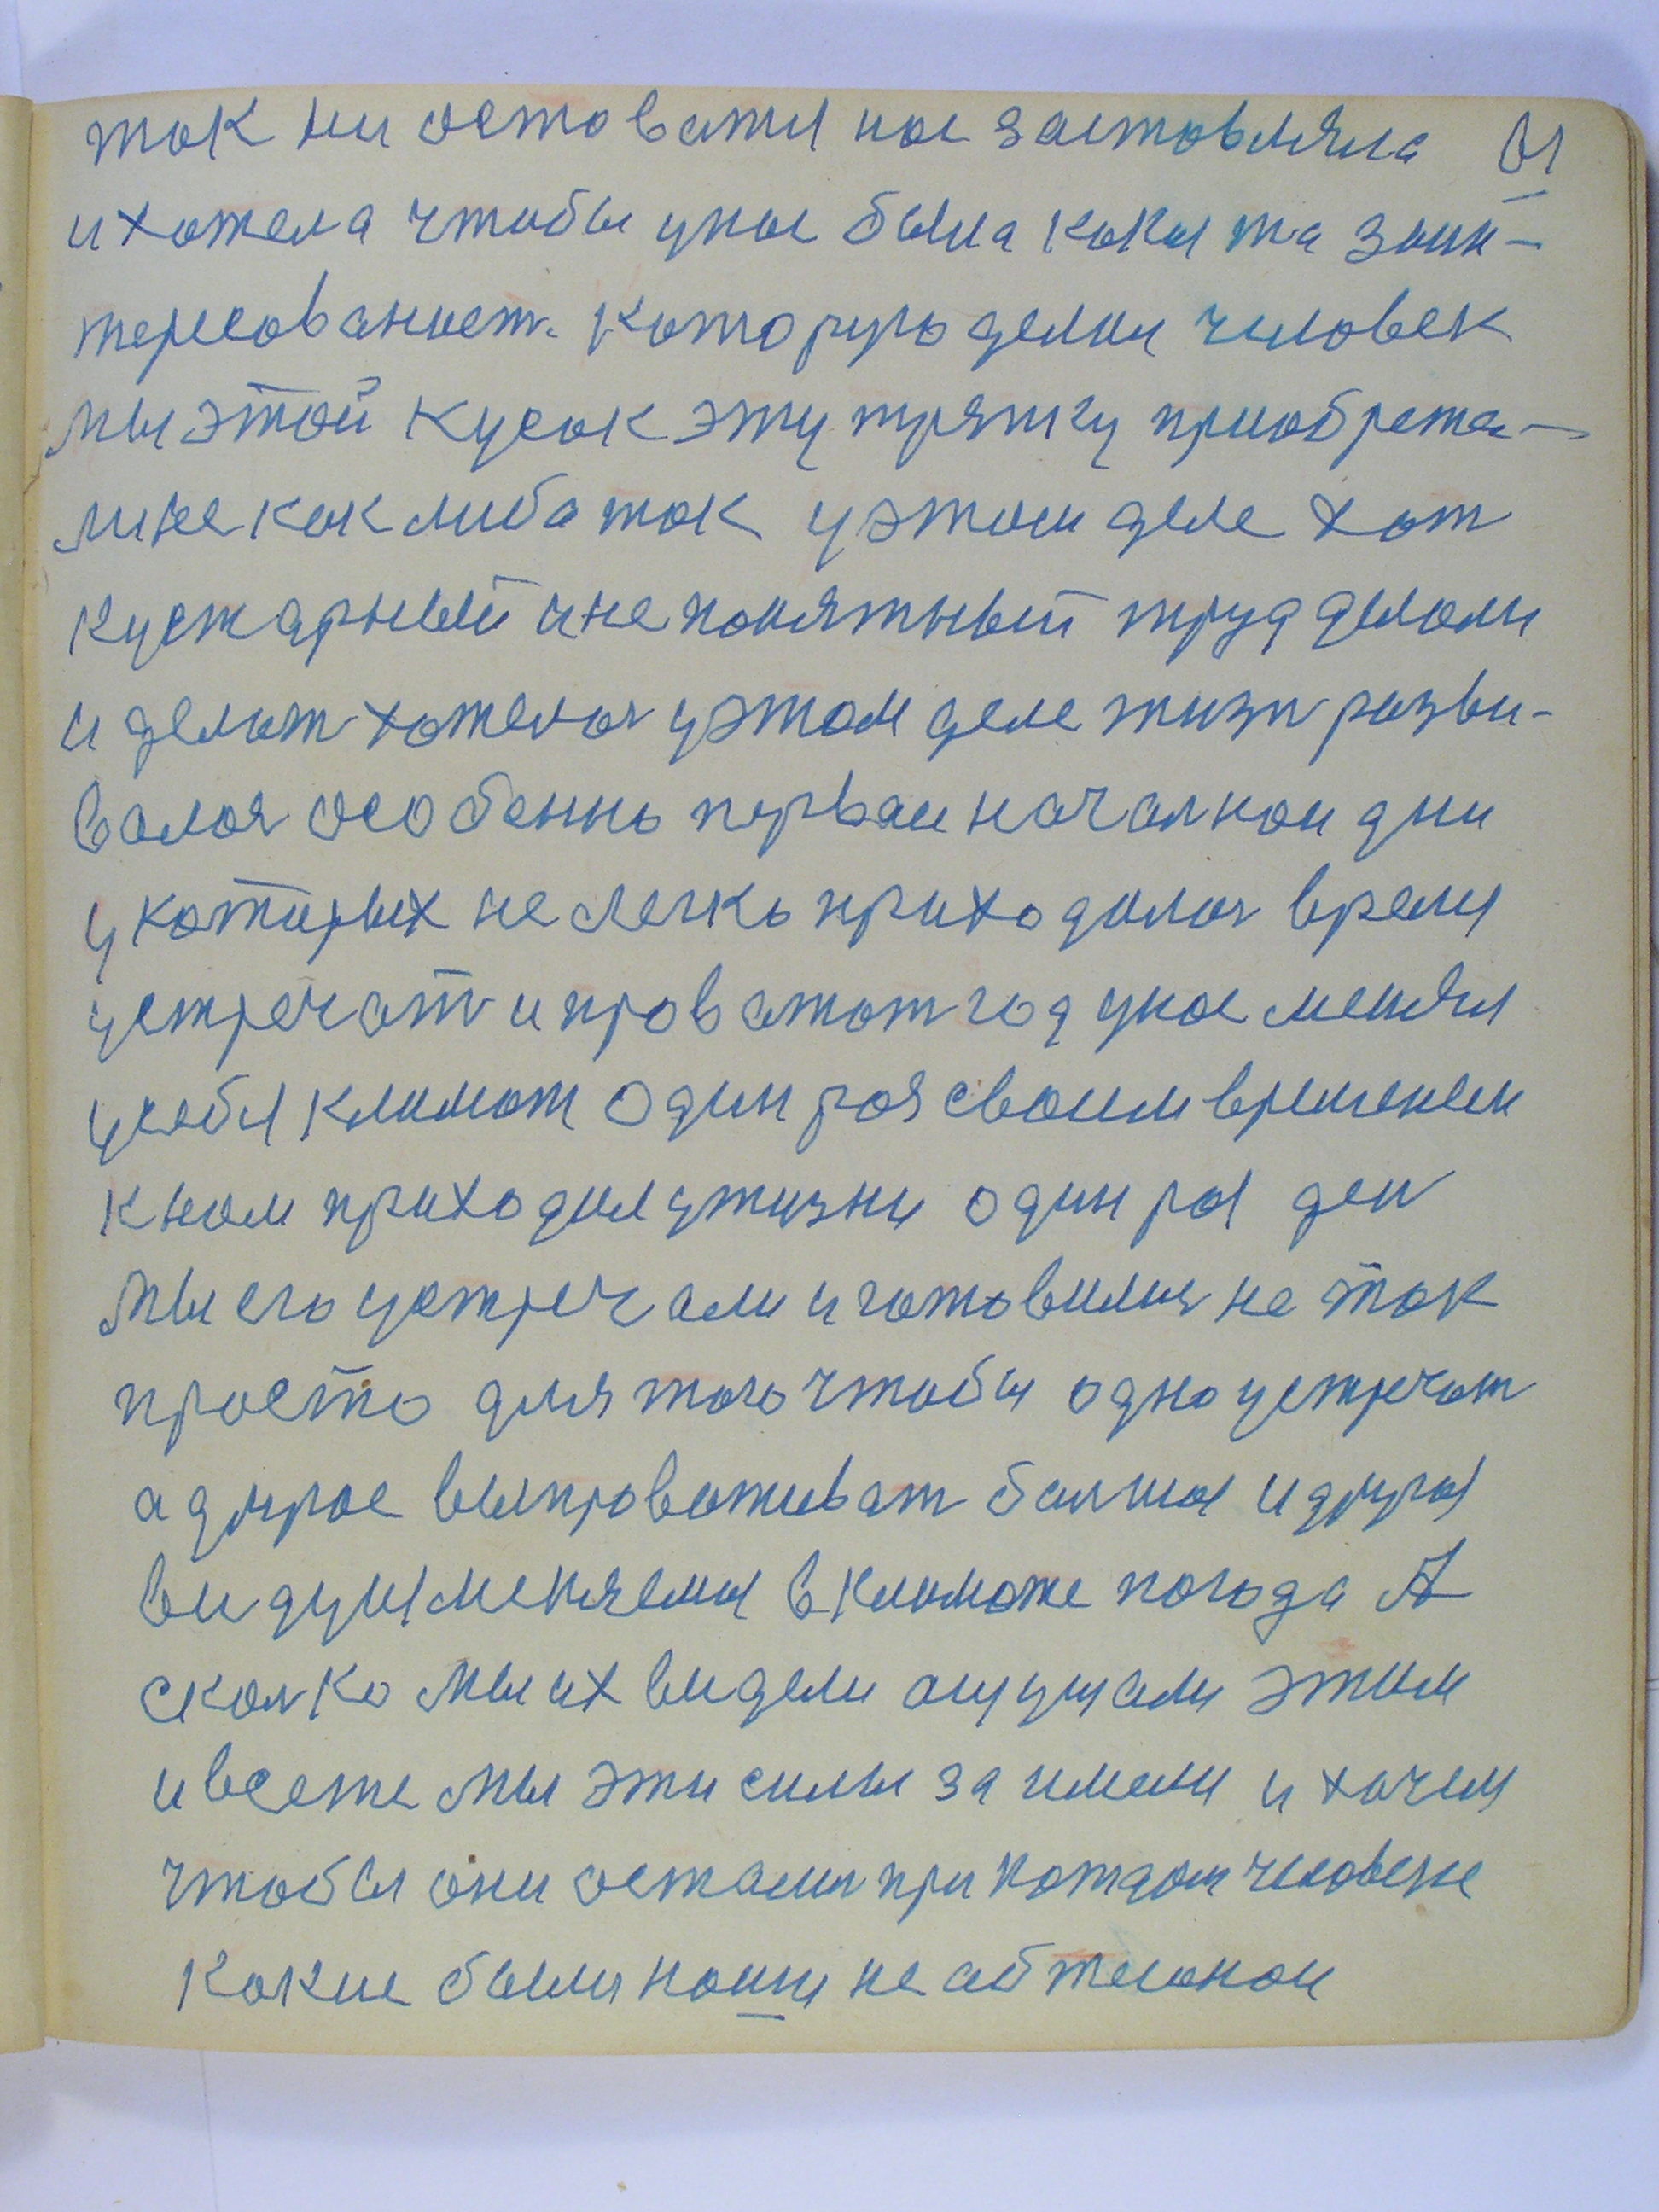 так ни оставатя нас заставляла 61
и хотела чтобы унас была какая та заин-
тересованост. которую делил человек
мы этой кусок эту тряпку приобрета-
ли не как либа так у этом деле хот
кустарный и не понятный труд делали
и делат хателоя у этом деле жизн разви-
валоя особенно первай началнаи дни
у которых не легко приходилоя время
устречат и проважат год унас менял
у себя климат один раз своим временем
к нам приходил ужизни один раз ден
мы его устречали и готовилися не так
просто для того чтобы одно устречат
а другое выпроваживат балшая и другая
ви думя меняемая в климате погода А
сколко мы их видели ощущали этим
и все же мы эти силы за имели и хочем
чтобы они осталия при каждом человеке
какие были наши не обжеланаи